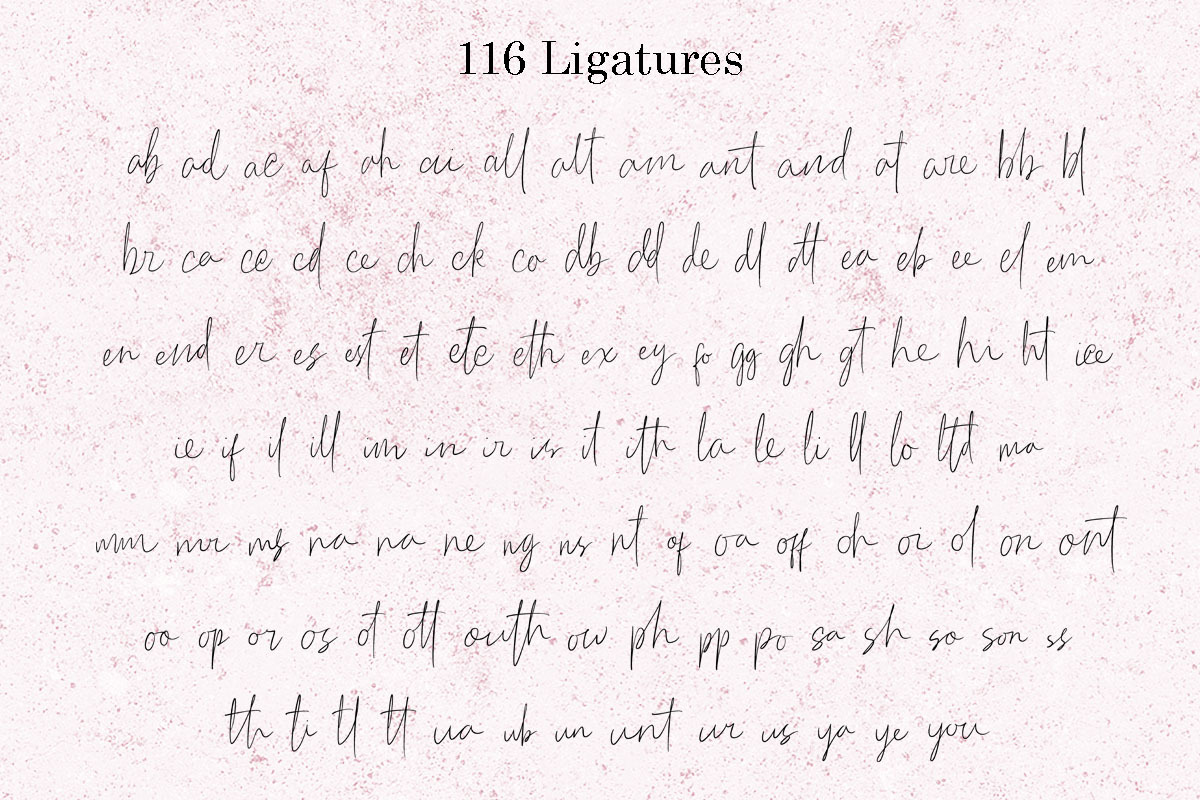 116 Ligatures
ab ad ae af ah ai all alt am ant and at are bb bl
br ca ce cd ce ch ck co db dd de dl dt ea eb ee el em
en end er es est et ete eth ex ey fo gg gh gt he hi ht ice
ie if il ill im in ir is it ith la le li ll lo ltd ma
mm mr ms na na ne ng ns nt of oa off oh oi ol on ont
oo op or os ot ott outh ow ph pp po sa sh so son ss
th ti tl tt ua ub un unt ur us ya ye you